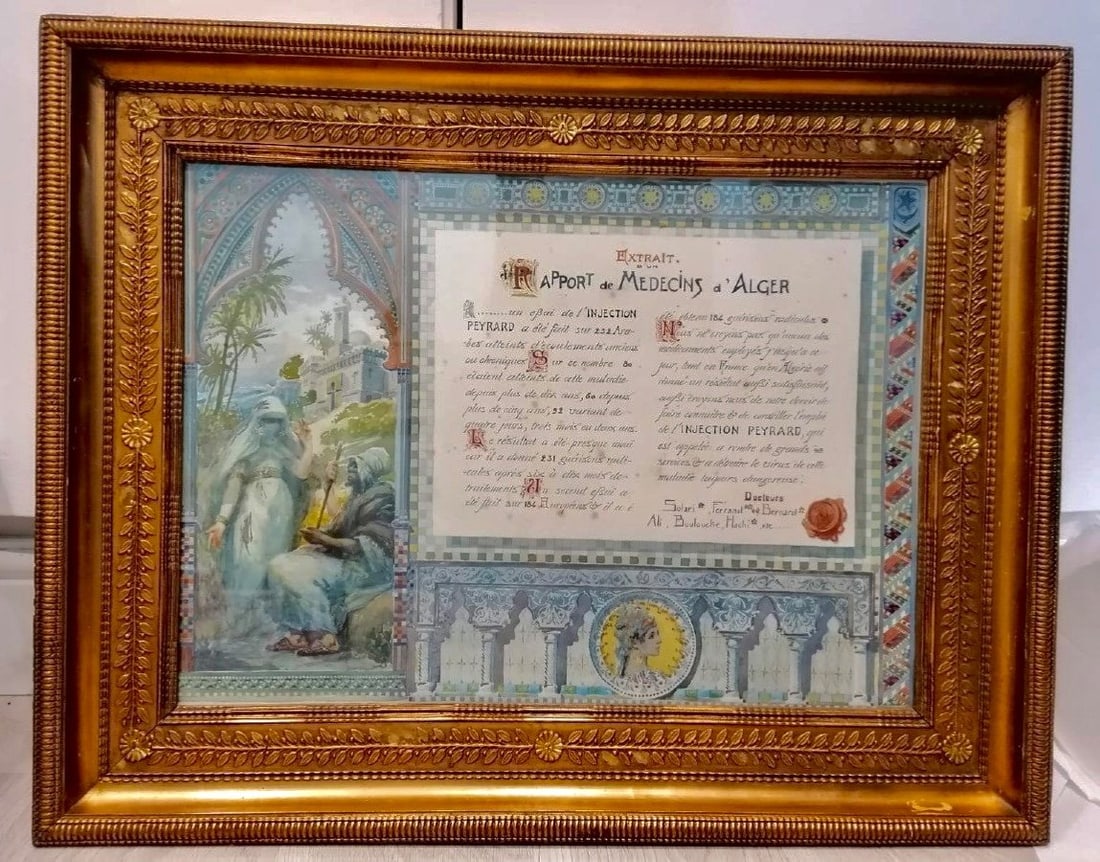 EXTRAIT.
D'UN
RAPPORT de MEDECINS d'ALGER
A........un essai de l'INJECTION
PEYRARD a été fait sur 232 Ara-
bes atteints d'écoulements anciens
ou chroniques Sur ce nombre 80
étaient atteints de cette maladie
depuis plus de dix ans, 60 depuis
plus de cinq ans, 92 variant de
quatre jours, trois mois ou deux ans.
Le résultat a été presque inouï
car il a donné 231 guérisons radi-
cales après six à dix mois de
traitements Un second essai a
été fait sur 184 Européens & il a é
été obtenu 184 guérisons radicales
Nous ne croyons pas qu'aucun des
médicaments employés jusqu'à ce
jour, tant en France qu'en Algérie ait
donné un résultat aussi satisfaisant,
aussi croyons nous de notre devoir de
faire connaître & de conseiller l'emploi
de l'INJECTION PEYRARD, qui
est appelée a rendre de grands
services & a détruire le virus de cette
maladie toujours dangereuse.
Docteurs
Solari, Ferrand, Bernard
Ali, Boulouche, Hachi, etc